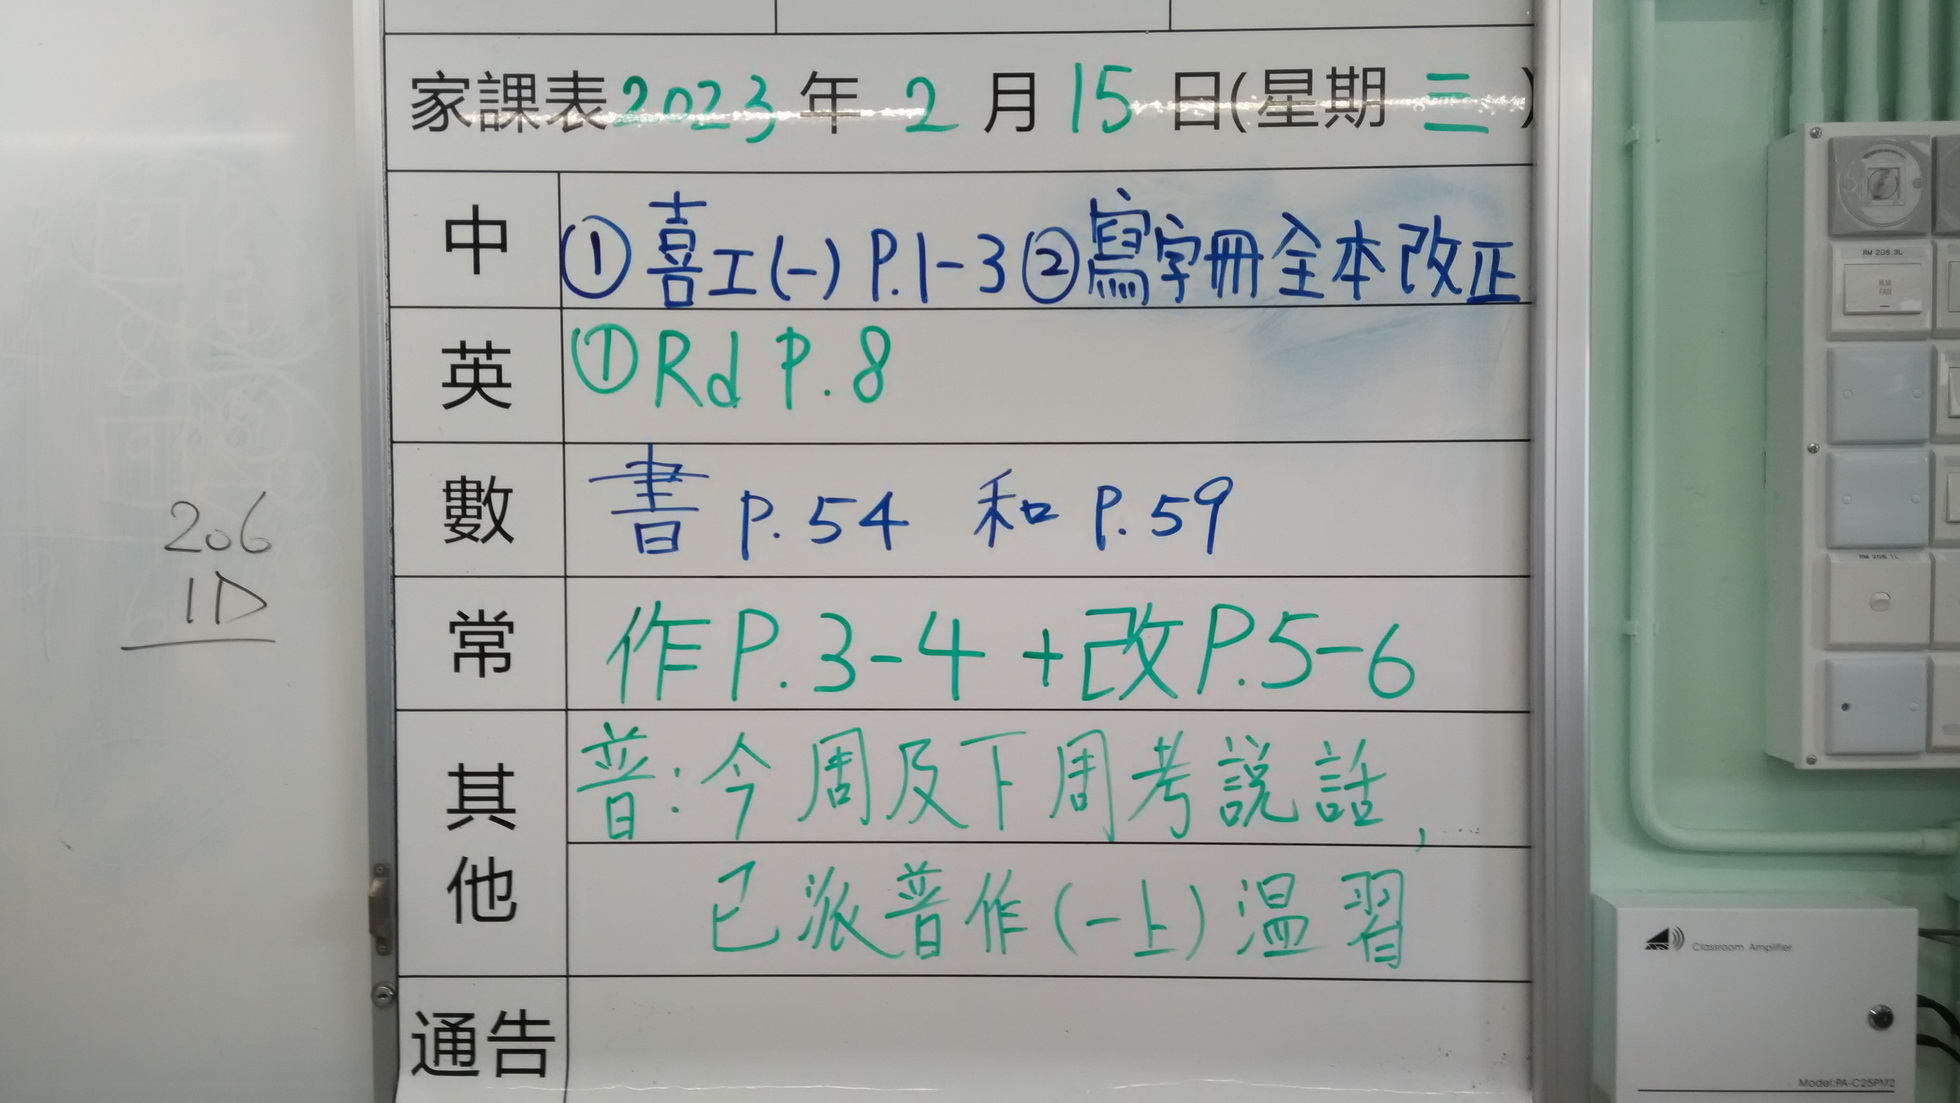 家課表2023年2月15日(星期三)
中 ①喜工(一)P.1-3②寫字冊全本改正
英 ①Rd P.8
數 書 P.54 和 P.59
常 作P.3-4+改P.5-6
其他 普:今周及下周考說話,
已派普作(一上)温習
通告
206
1D
RM 206 3L
FAN
RM 206 1L
Classroom Amplifier
Model:PA-C25PM2